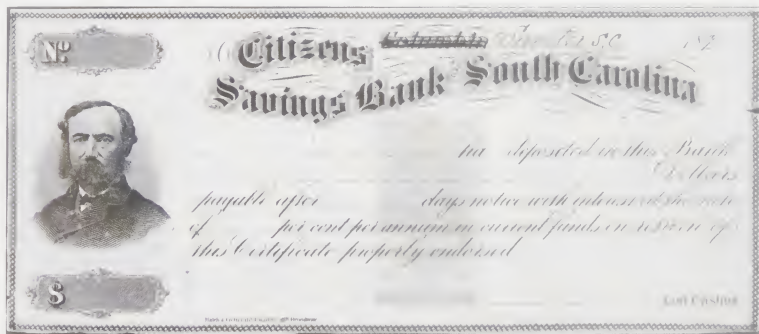 No.
Citizens Columbia S.C. 187
Savings Bank South Carolina
has deposited in this Bank
Dollars
payable after days notice with interest at the rate
of per cent per annum in current funds on return of
this Certificate properly endorsed
$
Asst Cashier